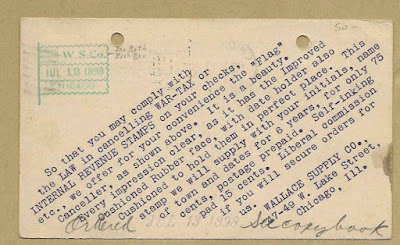 50-
W.S.Co.
JUL 12 1898
CHICAGO
So that you may comply with
the LAW in cancelling WAR-TAX or
INTERNAL REVENUE STAMPS on your checks,
etc., we offer for your convenience the "Flag"
Canceller, as shown above. It is a beauty.
Every impression clear, as it has the Improved
Cushioned Rubber Face, with date holder also
Cushioned to hold them in perfect place. This
stamp we will supply with your initials, name
of town and dates for 6 years, for only 75
cents, postage prepaid. Self-inking
pad, 15 cents. Liberal commission
if you will secure orders for
us.
WALLACE SUPPLY CO.,
47-49 W. Lake Street,
Chicago, Ill.
Ordered JUL 13 1898 See copybook